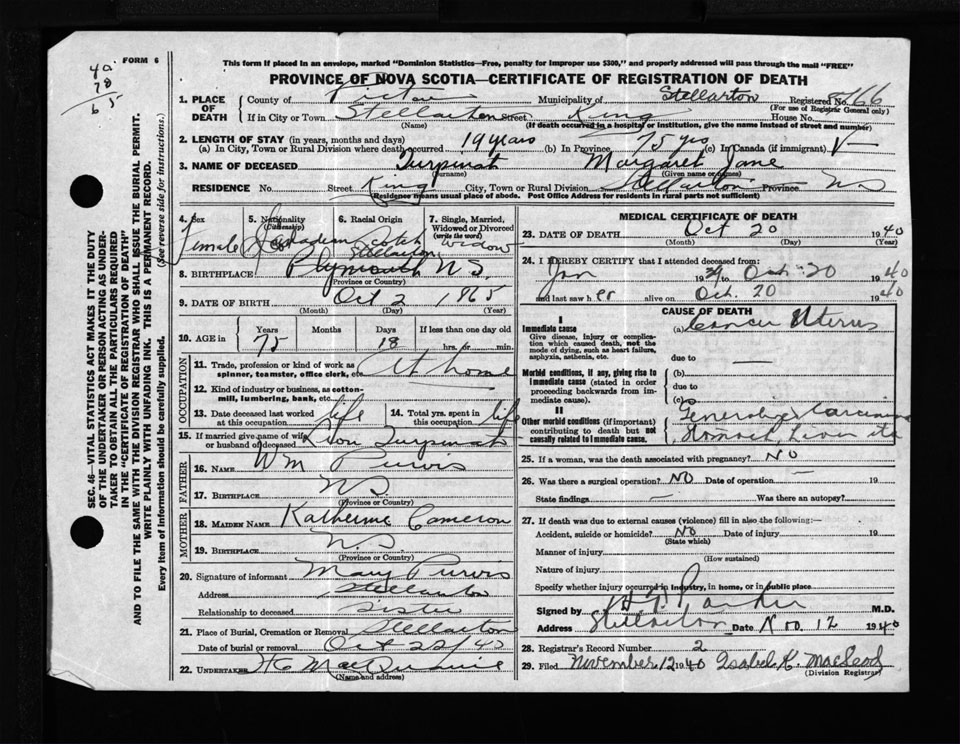 FORM 6
40
78
65
This form if placed in an envelope, marked "Dominion Statistics—Free, penalty for improper use $300," and properly addressed will pass through the mail "FREE"
PROVINCE OF NOVA SCOTIA—CERTIFICATE OF REGISTRATION OF DEATH
1. PLACE OF DEATH County of Pictou Municipality of Stellarton Registered No. 8166
(For use of Registrar General only)
If in City or Town Stellarton Street King House No.
(Name) (If death occurred in a hospital or institution, give the name instead of street and number)
2. LENGTH OF STAY (in years, months and days)
(a) In City, Town or Rural Division where death occurred 19 years (b) In Province 75 yrs (c) In Canada (if immigrant)
3. NAME OF DECEASED Turpinat Margaret Jane
(Surname) (Given name or names)
RESIDENCE No. Street King City, Town or Rural Division Stellarton Province N.S
(Residence means usual place of abode. Post Office Address for residents in rural parts not sufficient)
4. Sex 5. Nationality (Citizenship) 6. Racial Origin 7. Single, Married, Widowed or Divorced (write the word)
Female Canadian Scotch Widow
Stellarton
8. BIRTHPLACE Plymouth N.S.
(Province or Country)
9. DATE OF BIRTH Oct 2 1865
(Month) (Day) (Year)
10. AGE in Years Months Days If less than one day old
75 18 hrs. or min.
OCCUPATION
11. Trade, profession or kind of work as spinner, teamster, office clerk, etc. At home
12. Kind of industry or business, as cotton-mill, lumbering, bank, etc.
13. Date deceased last worked at this occupation life 14. Total yrs. spent in this occupation life
15. If married give name of wife or husband of deceased Leon Turpinat
FATHER
16. NAME Wm Purvis
17. BIRTHPLACE N S
(Province or Country)
MOTHER
18. MAIDEN NAME Katherine Cameron
19. BIRTHPLACE N.S
(Province or Country)
20. Signature of informant Mary Purvis
Address Stellarton
Relationship to deceased Sister
21. Place of Burial, Cremation or Removal Stellarton
Date of burial or removal Oct 22/40
22. UNDERTAKER
(Name and address)
MEDICAL CERTIFICATE OF DEATH
23. DATE OF DEATH Oct 20 1940
(Month) (Day) (Year)
24. I HEREBY CERTIFY that I attended deceased from:
Jan to Oct 20 1940
and last saw her alive on Oct. 20 1940
CAUSE OF DEATH
I
Immediate cause
Give disease, injury or complication which caused death, not the mode of dying, such as heart failure, asphyxia, asthenia, etc.
(a) Cancer Uterus
due to —
Morbid conditions, if any, giving rise to immediate cause (stated in order proceeding backwards from immediate cause).
(b)
due to
(c)
II
Other morbid conditions (if important) contributing to death but not causally related to immediate cause.
General Carcinoma
Stomach, Liver etc
25. If a woman, was the death associated with pregnancy? NO
26. Was there a surgical operation? NO Date of operation — 19
State findings — Was there an autopsy?
27. If death was due to external causes (violence) fill in also the following:—
Accident, suicide or homicide? NO Date of injury 19
(State which)
Manner of injury
(How sustained)
Nature of injury
Specify whether injury occurred in industry, in home, or in public place
Signed by Parker M.D.
Address Stellarton Date Nov. 12 1940
28. Registrar's Record Number 2
29. Filed November 12 1940 Isabel K. MacLeod
(Division Registrar)
SEC. 46—VITAL STATISTICS ACT MAKES IT THE DUTY
OF THE UNDERTAKER OR PERSON ACTING AS UNDER-
TAKER TO OBTAIN ALL THE PARTICULARS REQUIRED
IN THE "CERTIFICATE OF REGISTRATION OF DEATH"
AND TO FILE THE SAME WITH THE DIVISION REGISTRAR WHO SHALL ISSUE THE BURIAL PERMIT.
WRITE PLAINLY WITH UNFADING INK. THIS IS A PERMANENT RECORD.
Every item of Information should be carefully supplied. (See reverse side for instructions.)